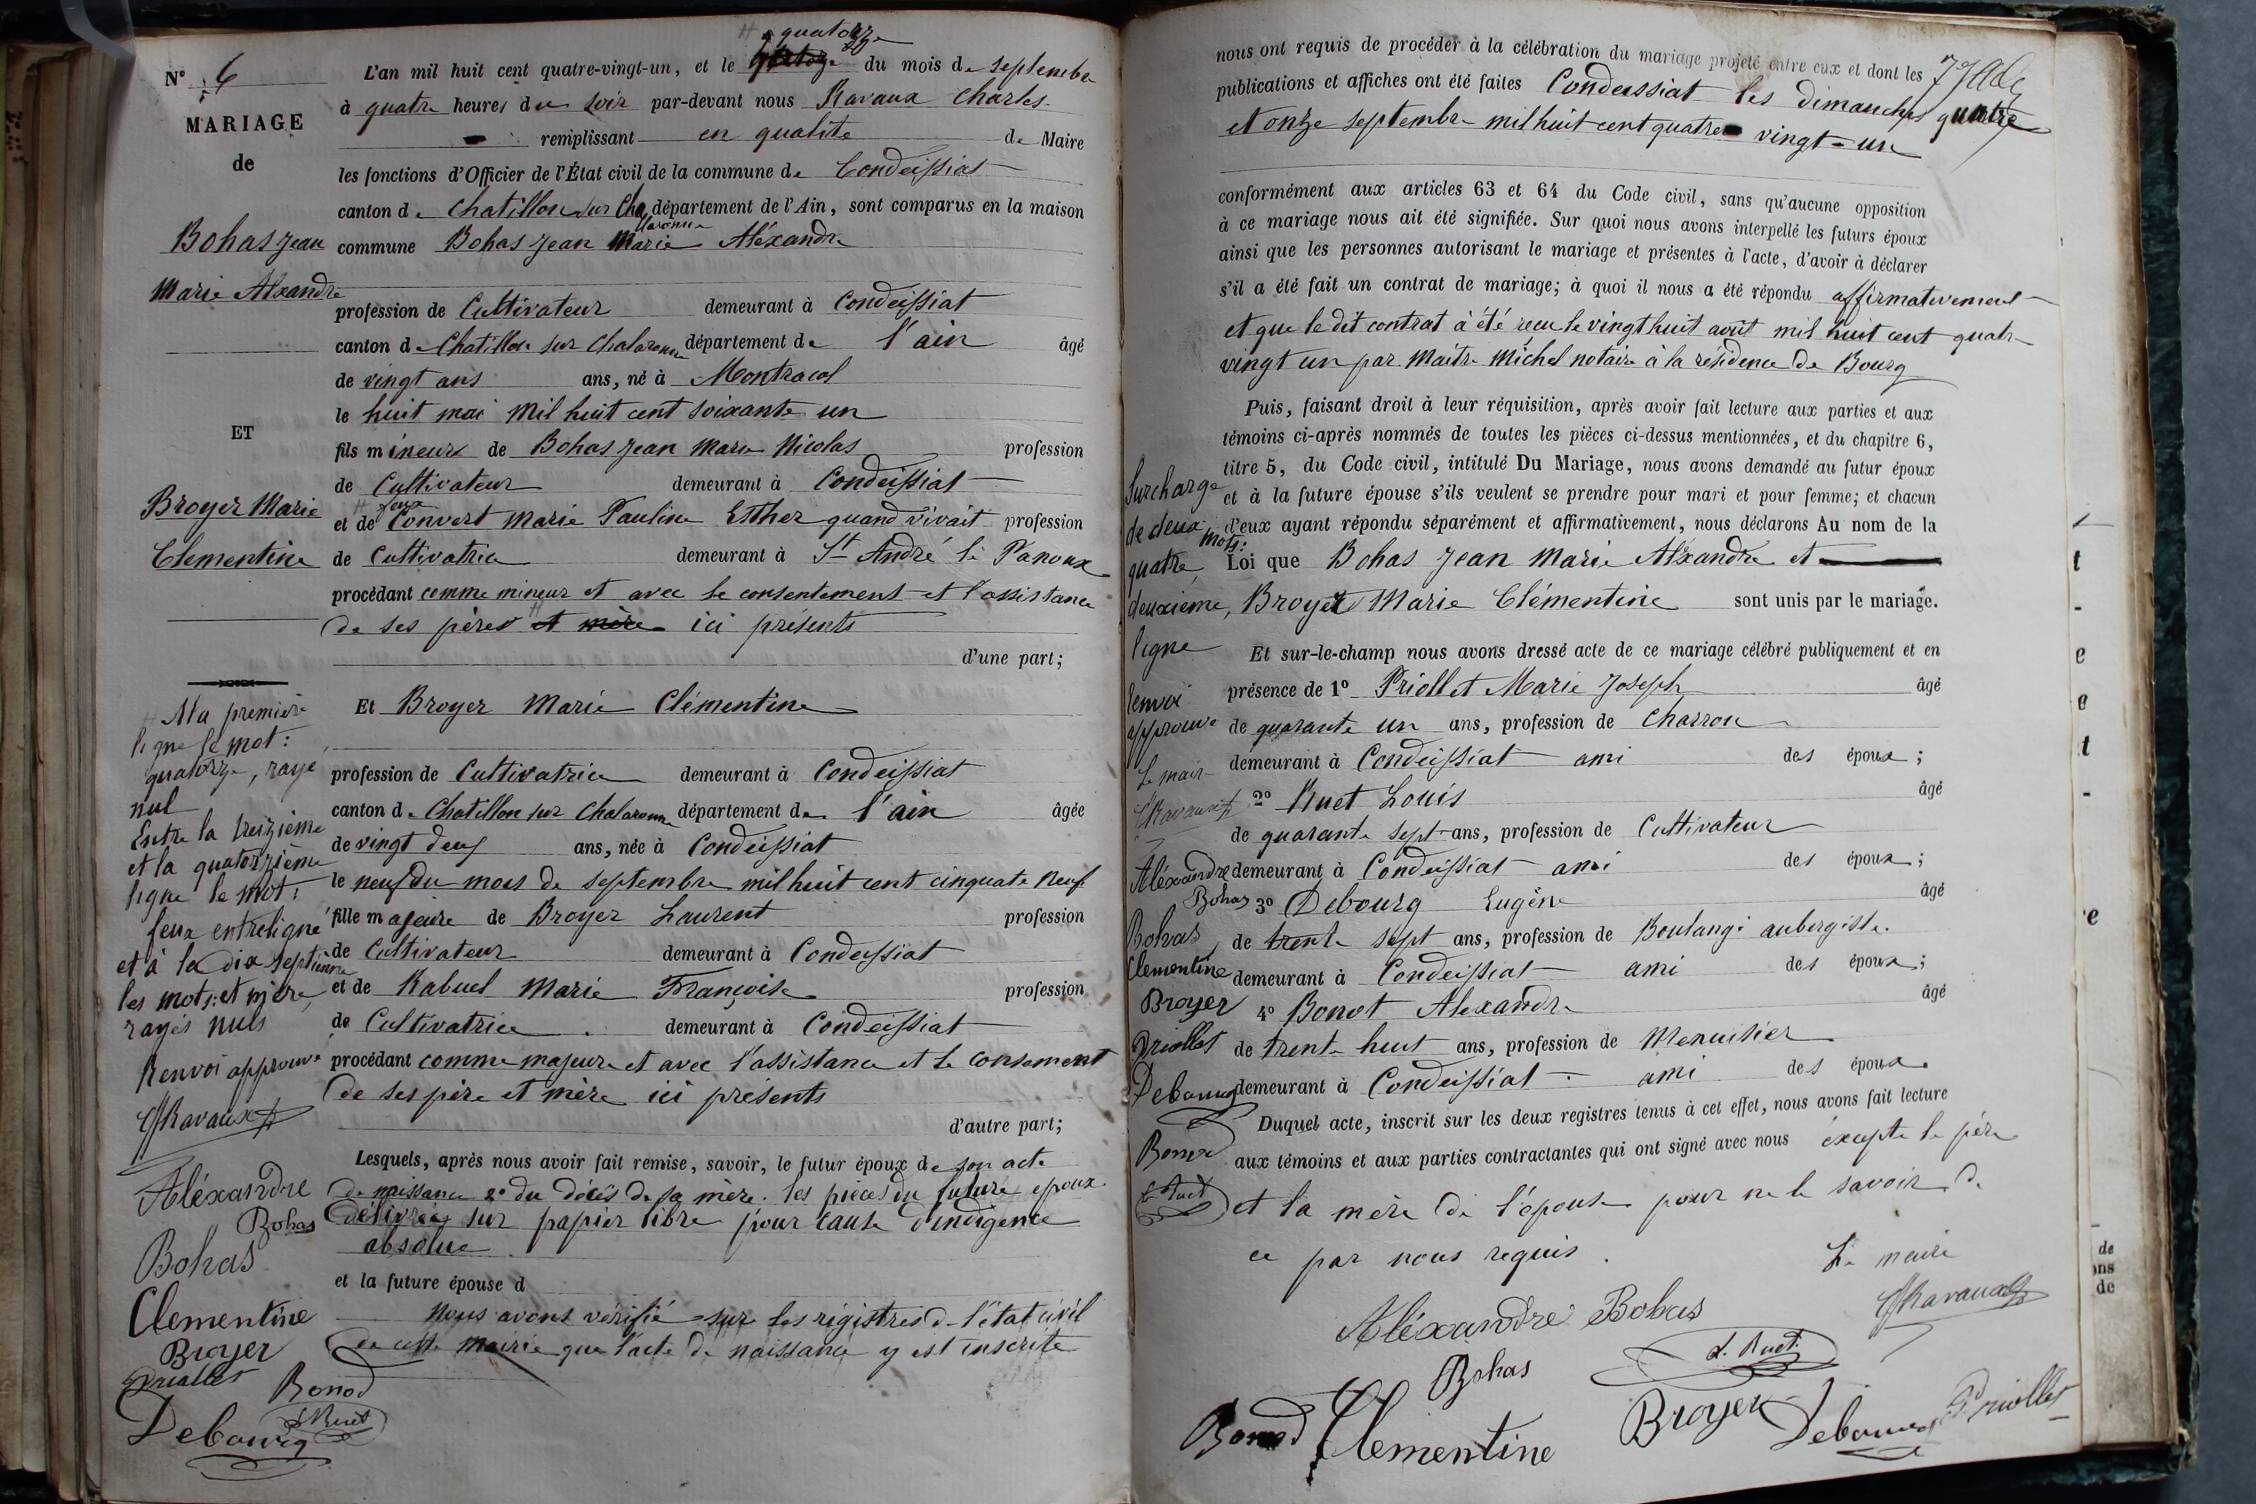 N° 6
MARIAGE
de
Bohas Jean
Marie Aléxandre
ET
Broyer Marie
Clementine
A la première
ligne le mot:
quatorze, rayé
nul
Entre la treizième
et la quatorzième
ligne le mot:
feue entreligné
et à la dix septième
les mots: et mère,
rayés nuls
Renvoi approuvé
Ravaux
Aléxandre
Bohas
Bohas
Clementine
Broyer
Priollet
Bonod
L. Ruet
Debourg
quatorze
L'an mil huit cent quatre-vingt-un, et le quatorze du mois de septembre
à quatre heures du soir par-devant nous Ravaux Charles
remplissant en qualité de Maire
les fonctions d'Officier de l'État civil de la commune de Condeissiat
canton de Chatillon sur Cha département de l'Ain, sont comparus en la maison
laronne
commune Bohas Jean Marie Aléxandre
profession de Cultivateur demeurant à Condeissiat
canton de Chatillon sur Chalaronne département de l'ain âgé
de vingt ans ans, né à Montracol
le huit mai mil huit cent soixante un
fils mineur de Bohas Jean Marie Nicolas profession
de Cultivateur demeurant à Condeissiat
feue
et de Convert Marie Pauline Esther quand vivait profession
de Cultivatrice demeurant à St André le Panoux
procédant comme mineur et avec le consentement et l'assistance
de ses père et mère ici présents
d'une part;
Et Broyer Marie Clémentine
profession de Cultivatrice demeurant à Condeissiat
canton de Chatillon sur Chalaronne département de l'ain âgée
de vingt deux ans, née à Condeissiat
le neuf du mois de septembre mil huit cent cinquate neuf
fille majeure de Broyer Laurent profession
de Cultivateur demeurant à Condeissiat
et de Rabuel Marie Françoise profession
de Cultivatrice demeurant à Condeissiat
procédant comme majeure et avec l'assistance et le consement
de ses père et mère ici présents
d'autre part;
Lesquels, après nous avoir fait remise, savoir, le futur époux de son acte
de naissance 2° du décès de sa mère. les pièces du future époux
délivrées sur papier libre pour cause d'indigence
absolue
et la future épouse d
Nous avons vérifié sur les régistres de l'état civil
de cette mairie que l'acte de naissance y est inscrite
nous ont requis de procéder à la célébration du mariage projeté entre eux et dont les
publications et affiches ont été faites Condeissiat les dimanches quatre
et onze septembre mil huit cent quatre vingt-un
conformément aux articles 63 et 64 du Code civil, sans qu'aucune opposition
à ce mariage nous ait été signifiée. Sur quoi nous avons interpellé les futurs époux
ainsi que les personnes autorisant le mariage et présentes à l'acte, d'avoir à déclarer
s'il a été fait un contrat de mariage; à quoi il nous a été répondu affirmativement
et que le dit contrat à été reçu le vingt huit août mil huit cent quatre
vingt un par Maitre Michel notaire à la résidence de Bourg
Puis, faisant droit à leur réquisition, après avoir fait lecture aux parties et aux
témoins ci-après nommés de toutes les pièces ci-dessus mentionnées, et du chapitre 6,
titre 5, du Code civil, intitulé Du Mariage, nous avons demandé au futur époux
et à la future épouse s'ils veulent se prendre pour mari et pour femme; et chacun
d'eux ayant répondu séparément et affirmativement, nous déclarons Au nom de la
Loi que Bohas Jean Marie Aléxandre et
Broyer Marie Clémentine sont unis par le mariage.
Et sur-le-champ nous avons dressé acte de ce mariage célébré publiquement et en
présence de 1° Priollet Marie Joseph âgé
de quarante un ans, profession de charron
demeurant à Condeissiat ami des époux;
2° Ruet Louis âgé
de quarante sept ans, profession de Cultivateur
demeurant à Condeissiat ami des époux;
3° Debourg Eugène âgé
de trente sept ans, profession de Boulangé aubergiste.
demeurant à Condeissiat ami des époux;
4° Bonot Alexandre âgé
de trente huit ans, profession de Menuisier
demeurant à Condeissiat ami des époux.
Duquel acte, inscrit sur les deux registres tenus à cet effet, nous avons fait lecture
aux témoins et aux parties contractantes qui ont signé avec nous éxcepté le père
et la mère de l'épouse pour ne le savoir de
ce par nous requis.
Le maire
Ravaux
Aléxandre Bohas
Bohas
L. Ruet
Bonod
Clementine
Broyer
Debourg
Priollet
Surcharge
de deux
mots:
quatre,
deuxième,
ligne
renvoi
approuvé
Le maire
Ravaux
Aléxandre
Bohas
Bohas
Clementine
Broyer
Priollet
Debourg
Bonod
L. Ruet
t
-
e
e
t
-
e
de
ons
de